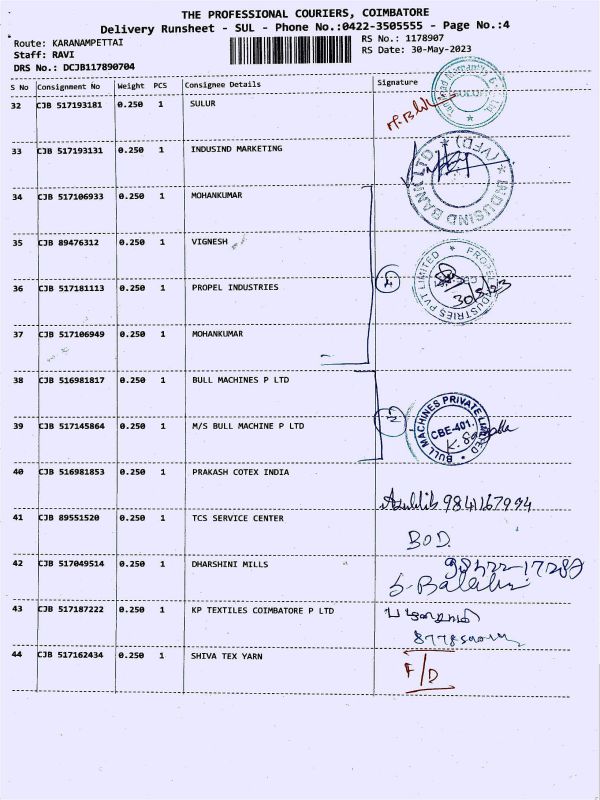 THE PROFESSIONAL COURIERS, COIMBATORE
Delivery Runsheet - SUL - Phone No.:0422-3505555 - Page No.:4
Route: KARANAMPETTAI
Staff: RAVI
DRS No.: DCJB117890704
RS No.: 1178907
RS Date: 30-May-2023
S No Consignment No Weight PCS Consignee Details Signature
32 CJB 517193181 0.250 1 SULUR
33 CJB 517193131 0.250 1 INDUSIND MARKETING
INDUSIND BANK LTD (VFD)
34 CJB 517106933 0.250 1 MOHANKUMAR
35 CJB 89476312 0.250 1 VIGNESH
36 CJB 517181113 0.250 1 PROPEL INDUSTRIES
PROPEL INDUSTRIES PVT LIMITED
30/5/23
37 CJB 517106949 0.250 1 MOHANKUMAR
38 CJB 516981817 0.250 1 BULL MACHINES P LTD
39 CJB 517145864 0.250 1 M/S BULL MACHINE P LTD
2
BULL MACHINES PRIVATE LIMITED
CBE-401.
40 CJB 516981853 0.250 1 PRAKASH COTEX INDIA
9841167994
41 CJB 89551520 0.250 1 TCS SERVICE CENTER
BOD
42 CJB 517049514 0.250 1 DHARSHINI MILLS
43 CJB 517187222 0.250 1 KP TEXTILES COIMBATORE P LTD
44 CJB 517162434 0.250 1 SHIVA TEX YARN
F/D